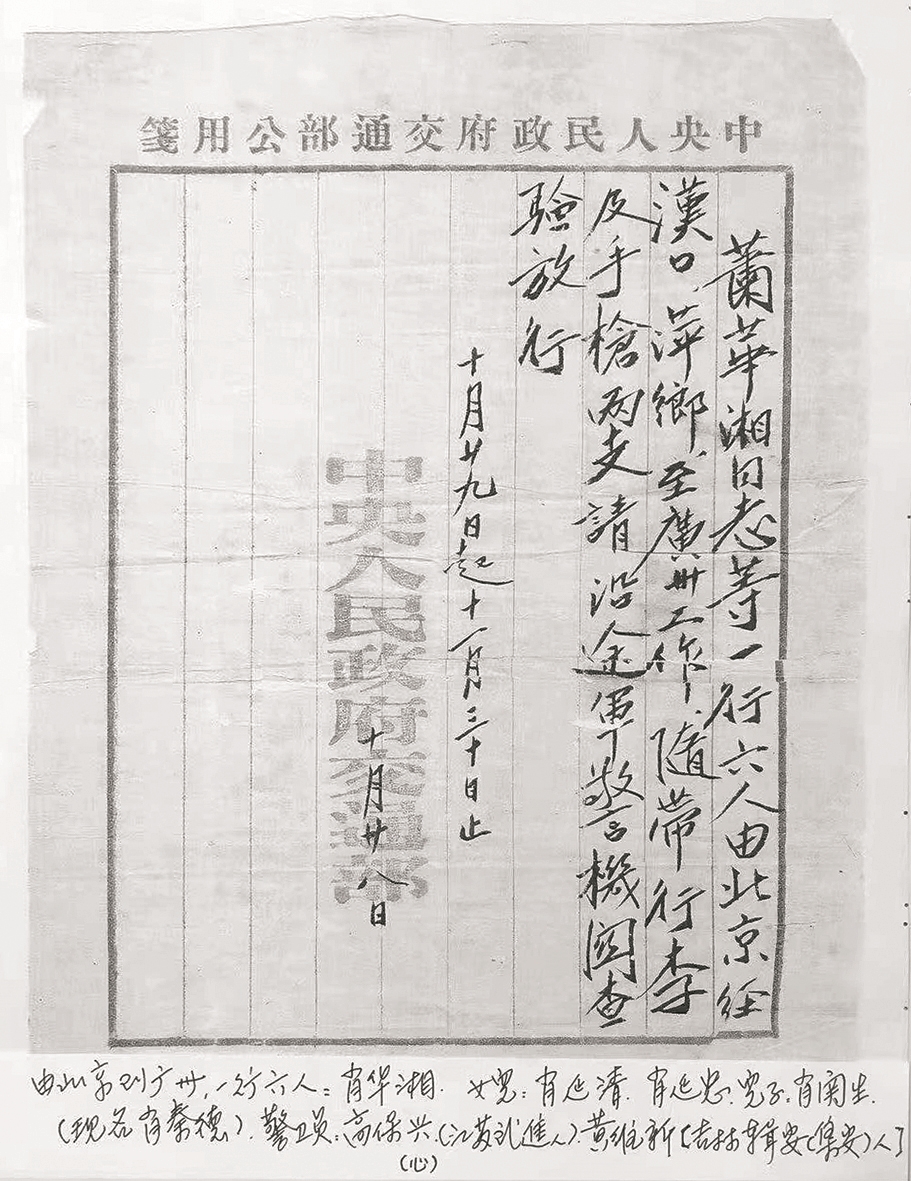 中央人民政府交通部公用箋
蕭華湘同志等一行六人由北京经
漢口、萍鄉、至廣州工作、随帶行李
及手槍两支請沿途軍警機関查
驗放行
十月廿九日起十一月三十日止
中央人民政府交通部
十月廿八日
由北京到广州,一行六人:肖华湘. 女儿:肖延清. 肖延忠. 儿子:肖南生.
(现名肖秦德). 警卫员:高保兴(江苏武进人).黄维新[吉林辑安(集安)人]
(心)